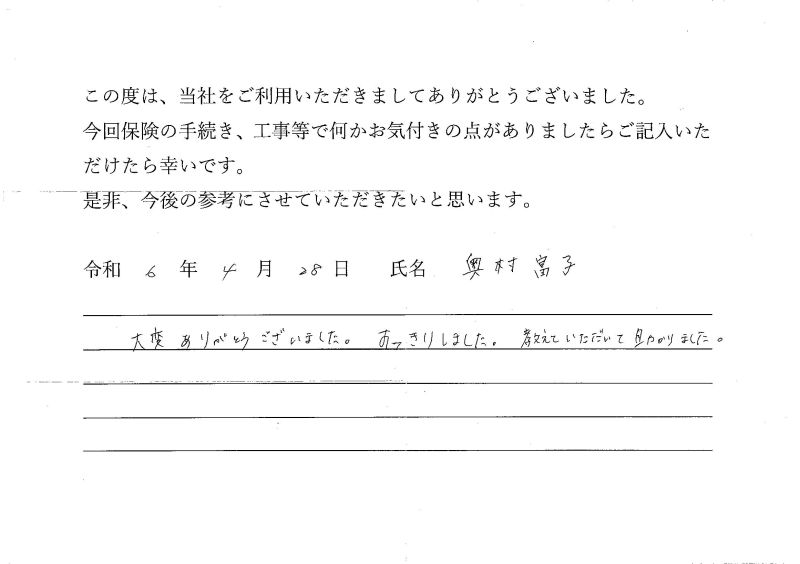 この度は、当社をご利用いただきましてありがとうございました。
今回保険の手続き、工事等で何かお気付きの点がありましたらご記入いた
だけたら幸いです。
是非、今後の参考にさせていただきたいと思います。
令和 6 年 4 月 28 日 氏名 奥村 富子
大変ありがとうございました。 すっきりしました。 教えていただいて助かりました。